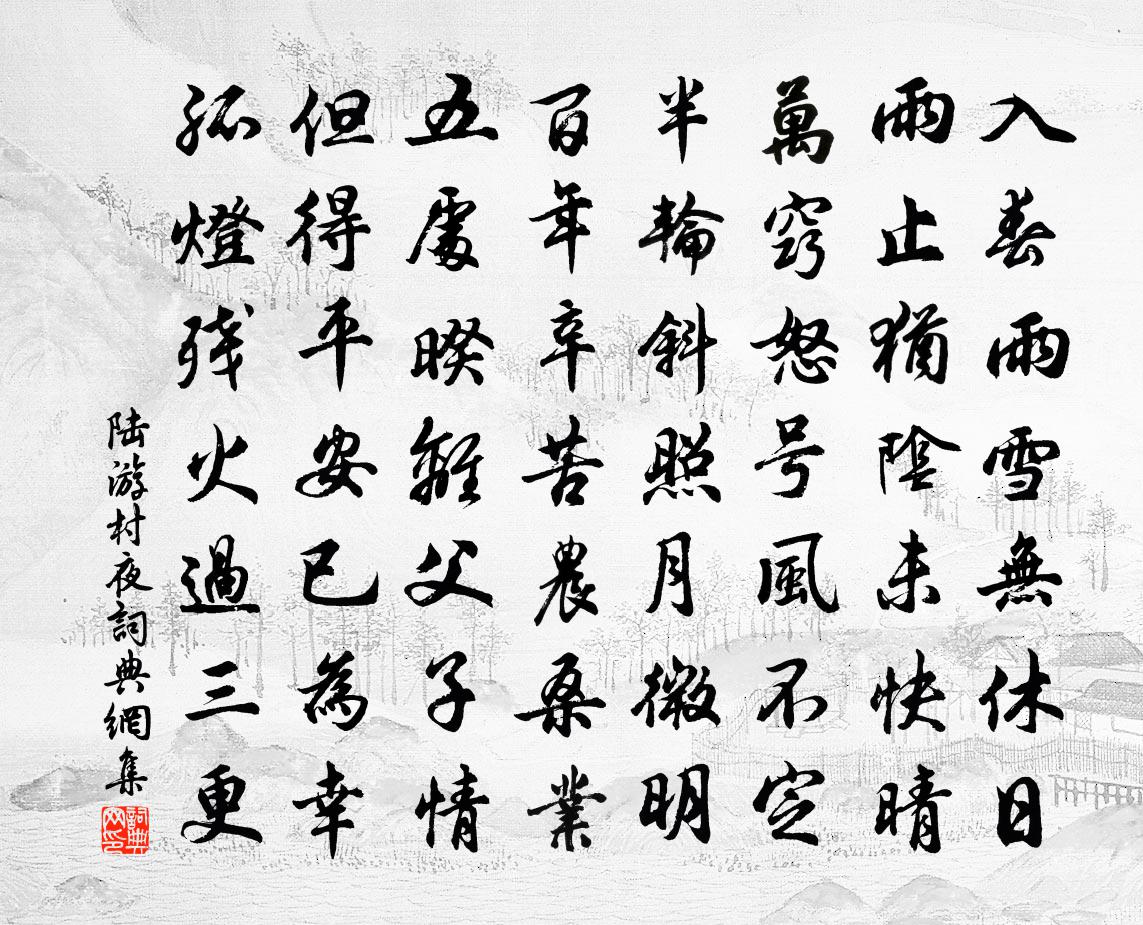 入春雨雪無休日
雨止猶陰未快晴
萬竅怒号風不定
半輪斜照月微明
百年辛苦農桑業
五處暌離父子情
但得平安已為幸
孤燈残火過三更
陆游村夜詞典網集
詞典网印